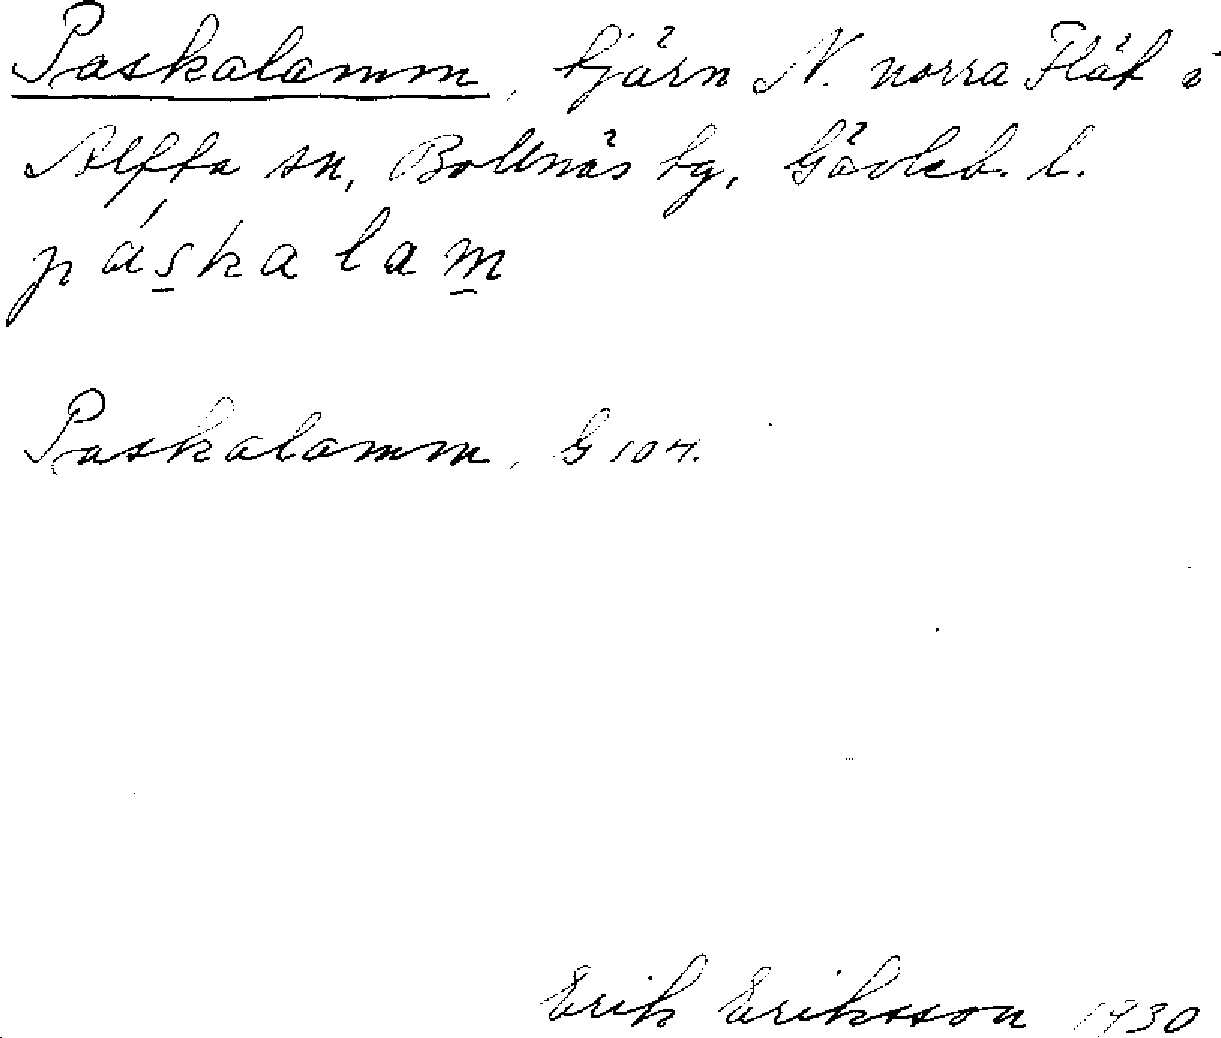 Paskalamm, tjärn N. norra Flåt i
Alfta sn, Bollnäs tg, Gävleb. l.
páskalam
Paskalamm, G 104.
Erik Eriksson 1930